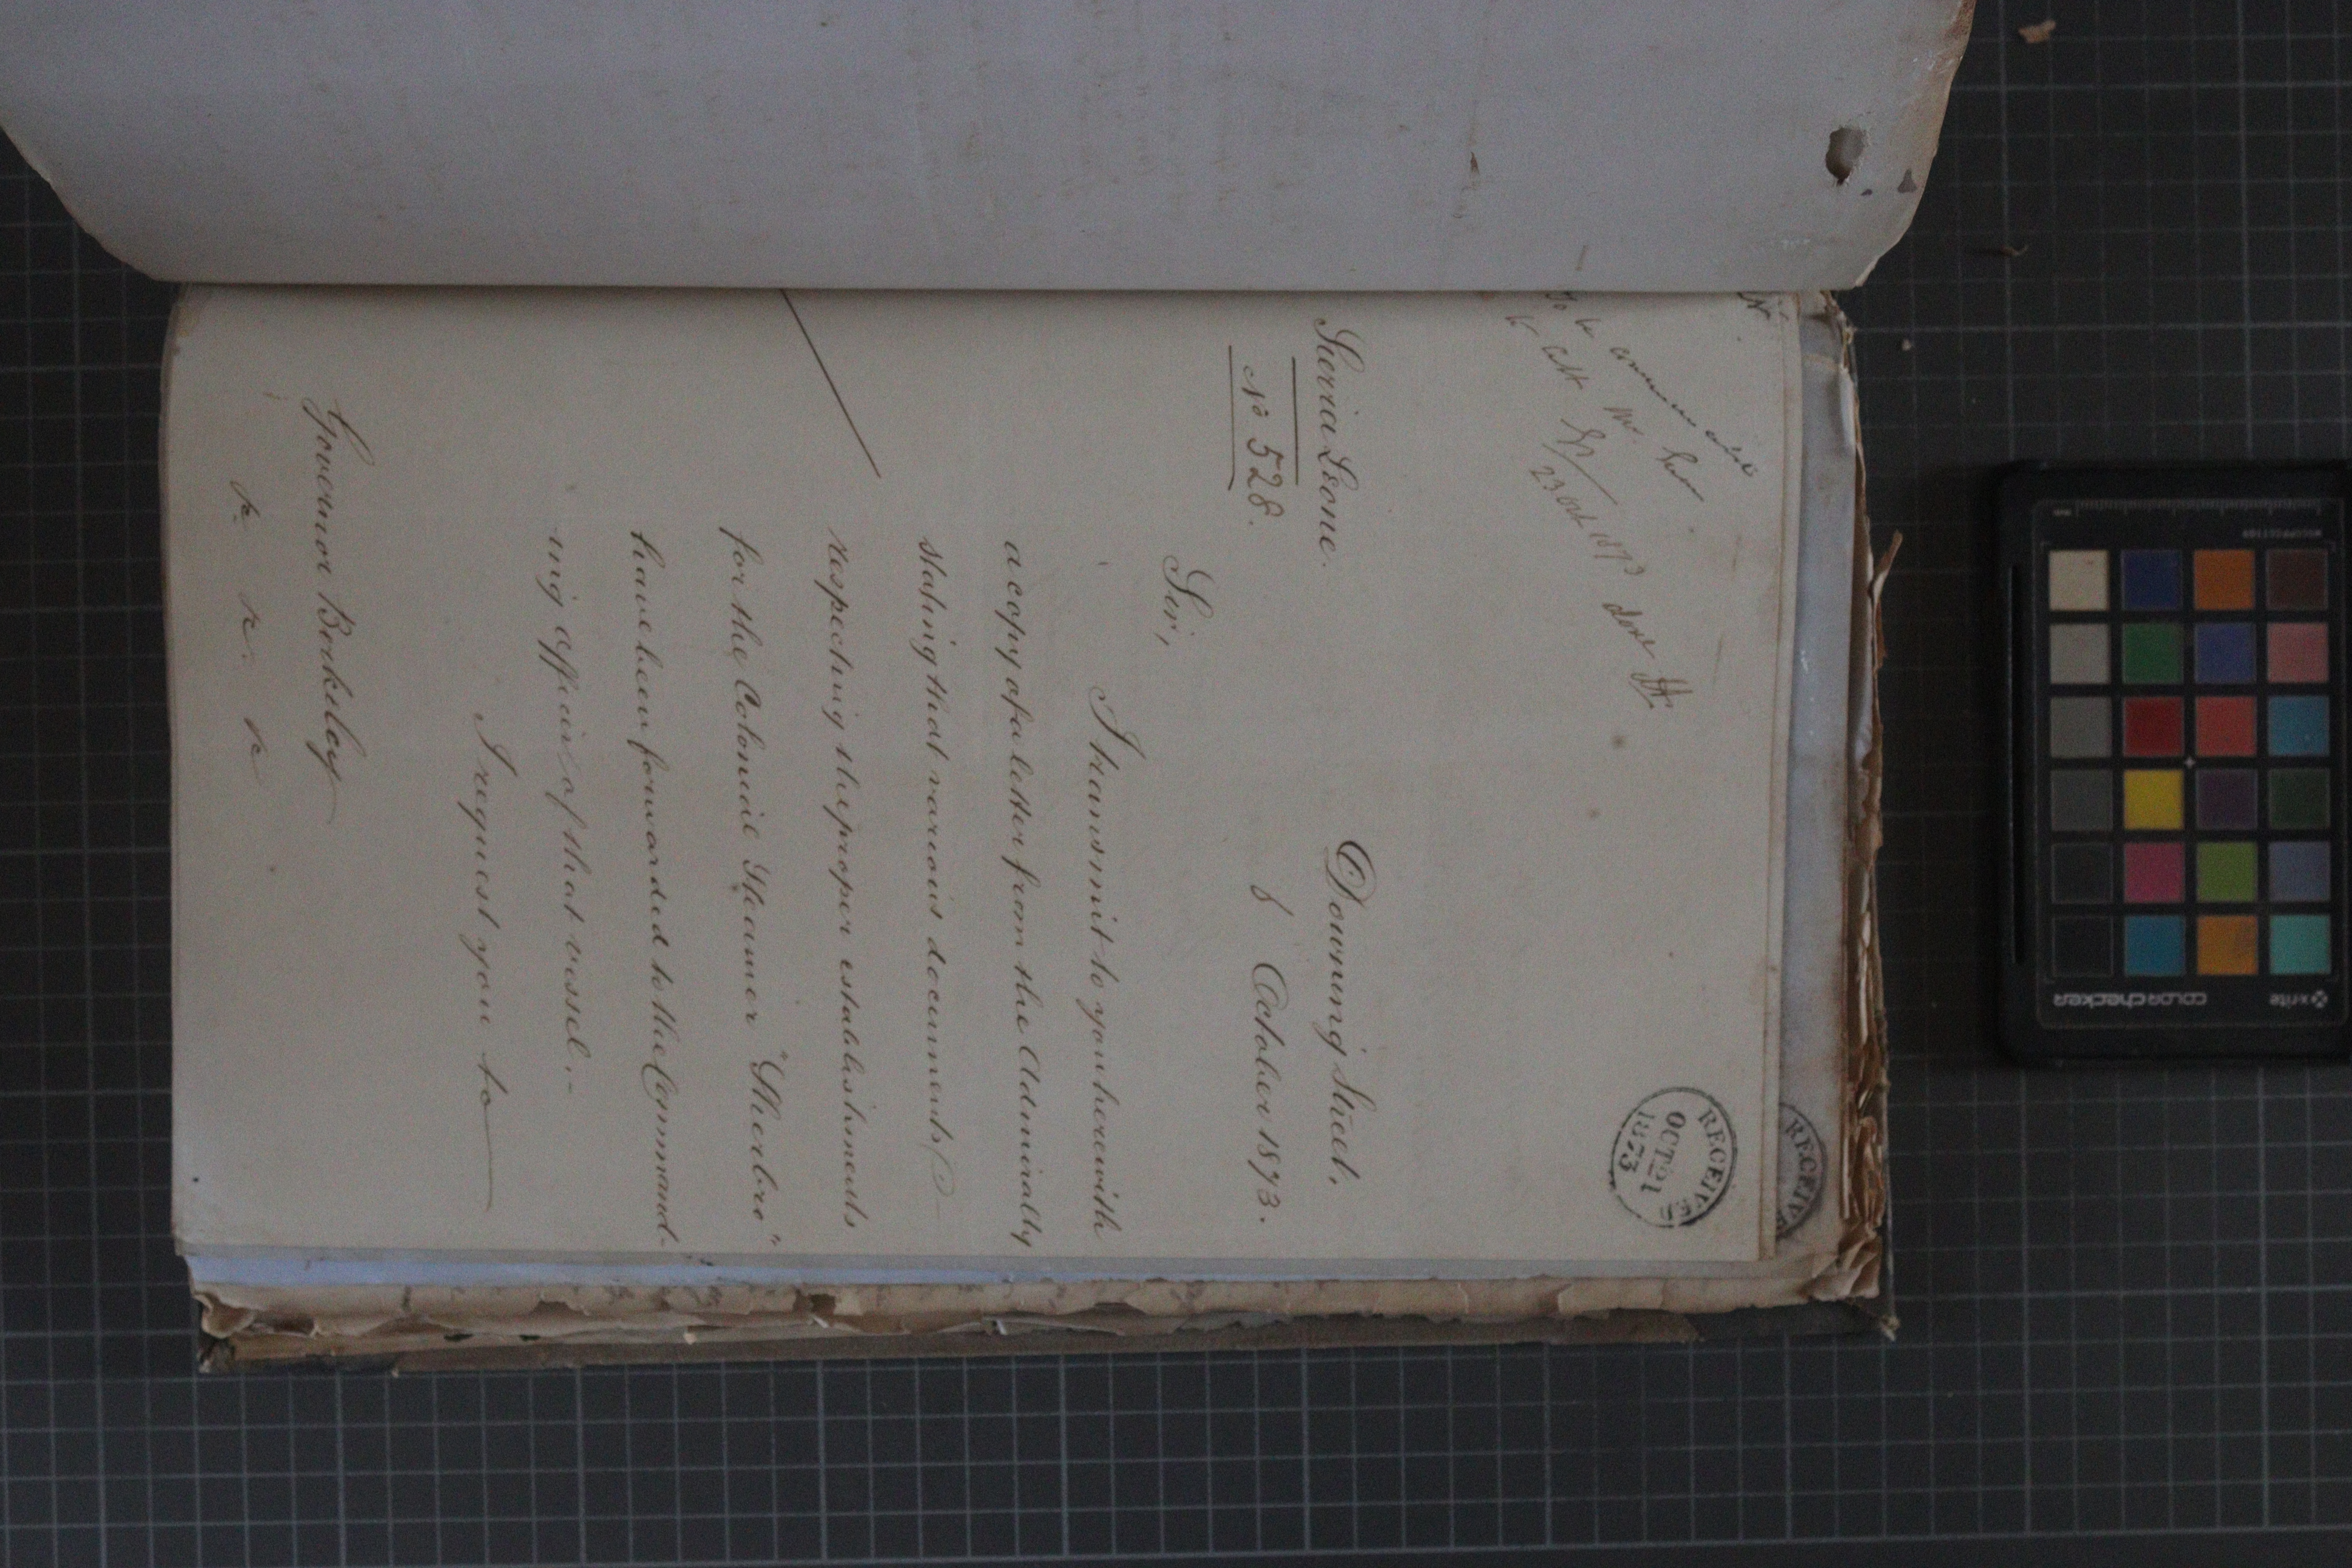 RECEIVED
OCT 21
1873
RECEIVE
to
23 Oct 1873 done
Sierra Leone.
No 528.
Downing Street,
8 October 1873.
Sir,
I transmit to you herewith
a copy of a letter from the Admiralty
stating that various documents
respecting the proper establishments
for the Colonial Steamer "Sherbro"
have been forwarded to the Command-
ing officer of that vessel.-
I request you to
Governor Berkeley
&c &c &c
colorchecker
x-rite